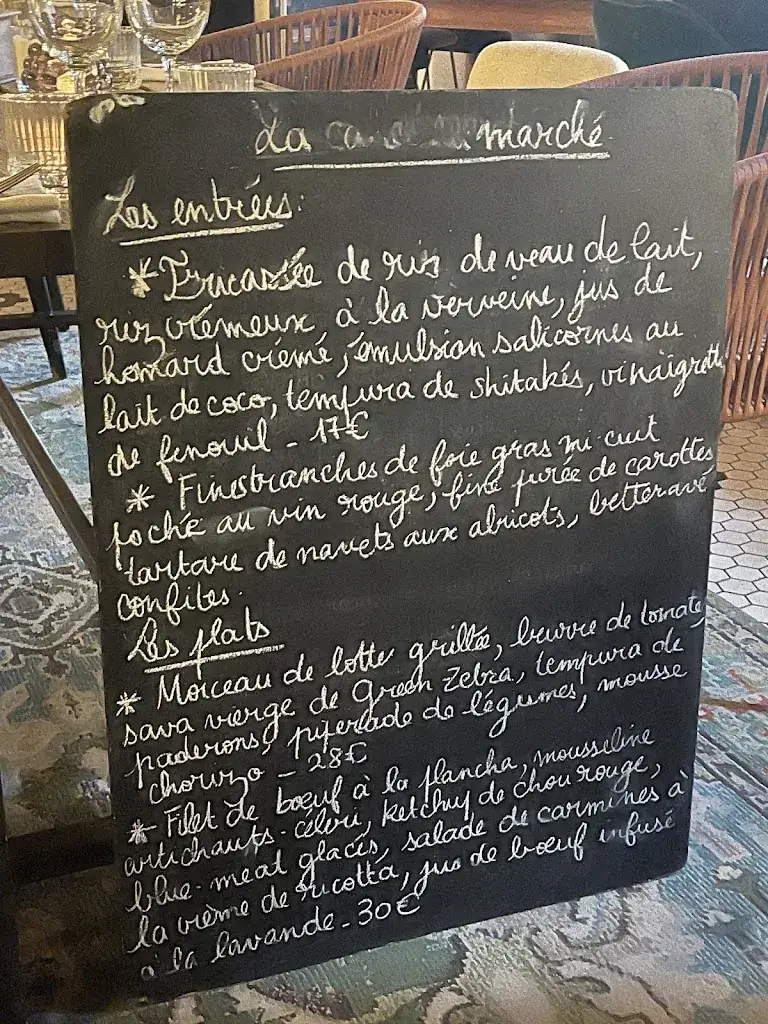 La marché
Les entrées:
* Fricassée de ris de veau de lait,
riz crémeux, à la verveine, jus de
homard crémé, émulsion salicornes au
lait de coco, tempura de shitakés, vinaigrette
de fenouil - 17€
* Fines tranches de foie gras mi-cuit
poché au vin rouge, fine purée de carottes
tartare de navets aux abricots, betterave
confites.
Les plats
* Morceau de lotte grillée, beurre de tomate
sava vierge de Green Zebra, tempura de
paderons, piperade de légumes, mousse
chorizo - 28€
* Filet de boeuf à la plancha, mousseline
artichauts-céleri, ketchup de chou rouge,
blue-meat glacés, salade de carmines à
la crème de ricotta, jus de boeuf infusé
à la lavande - 30€